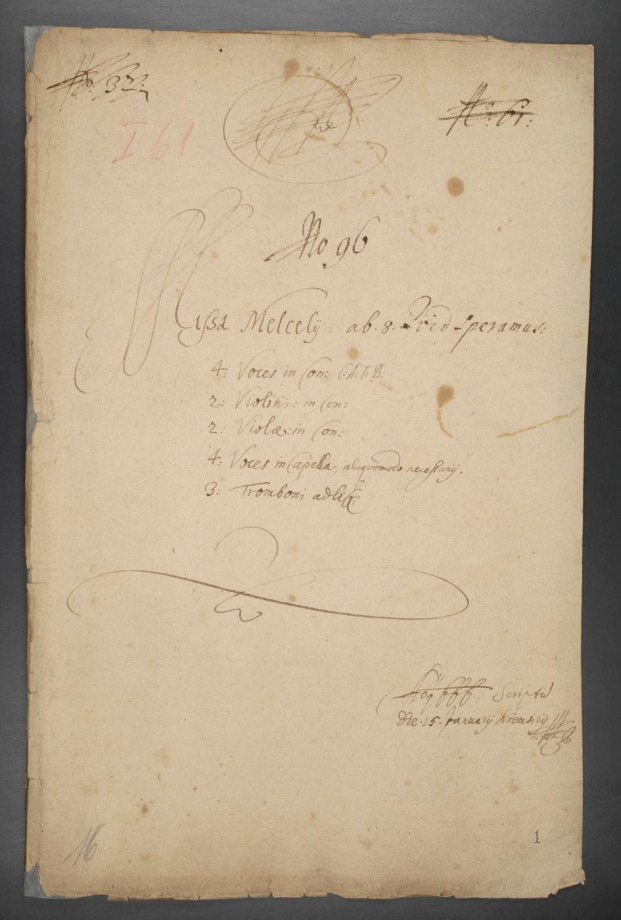 No: 32:
No: 61:
I 61
No 96
Missa Melcelÿ: ab. 8. Quid Speramus:
4: Voces in Con: C.A.T.B.
2: Violini: in Con:
2: Violæ: in Con:
4: Voces in Capella, aliquomodo necessarij.
3: Tromboni ad lib:
Ao 1666: Scripta
die 15. Januarij
16
1